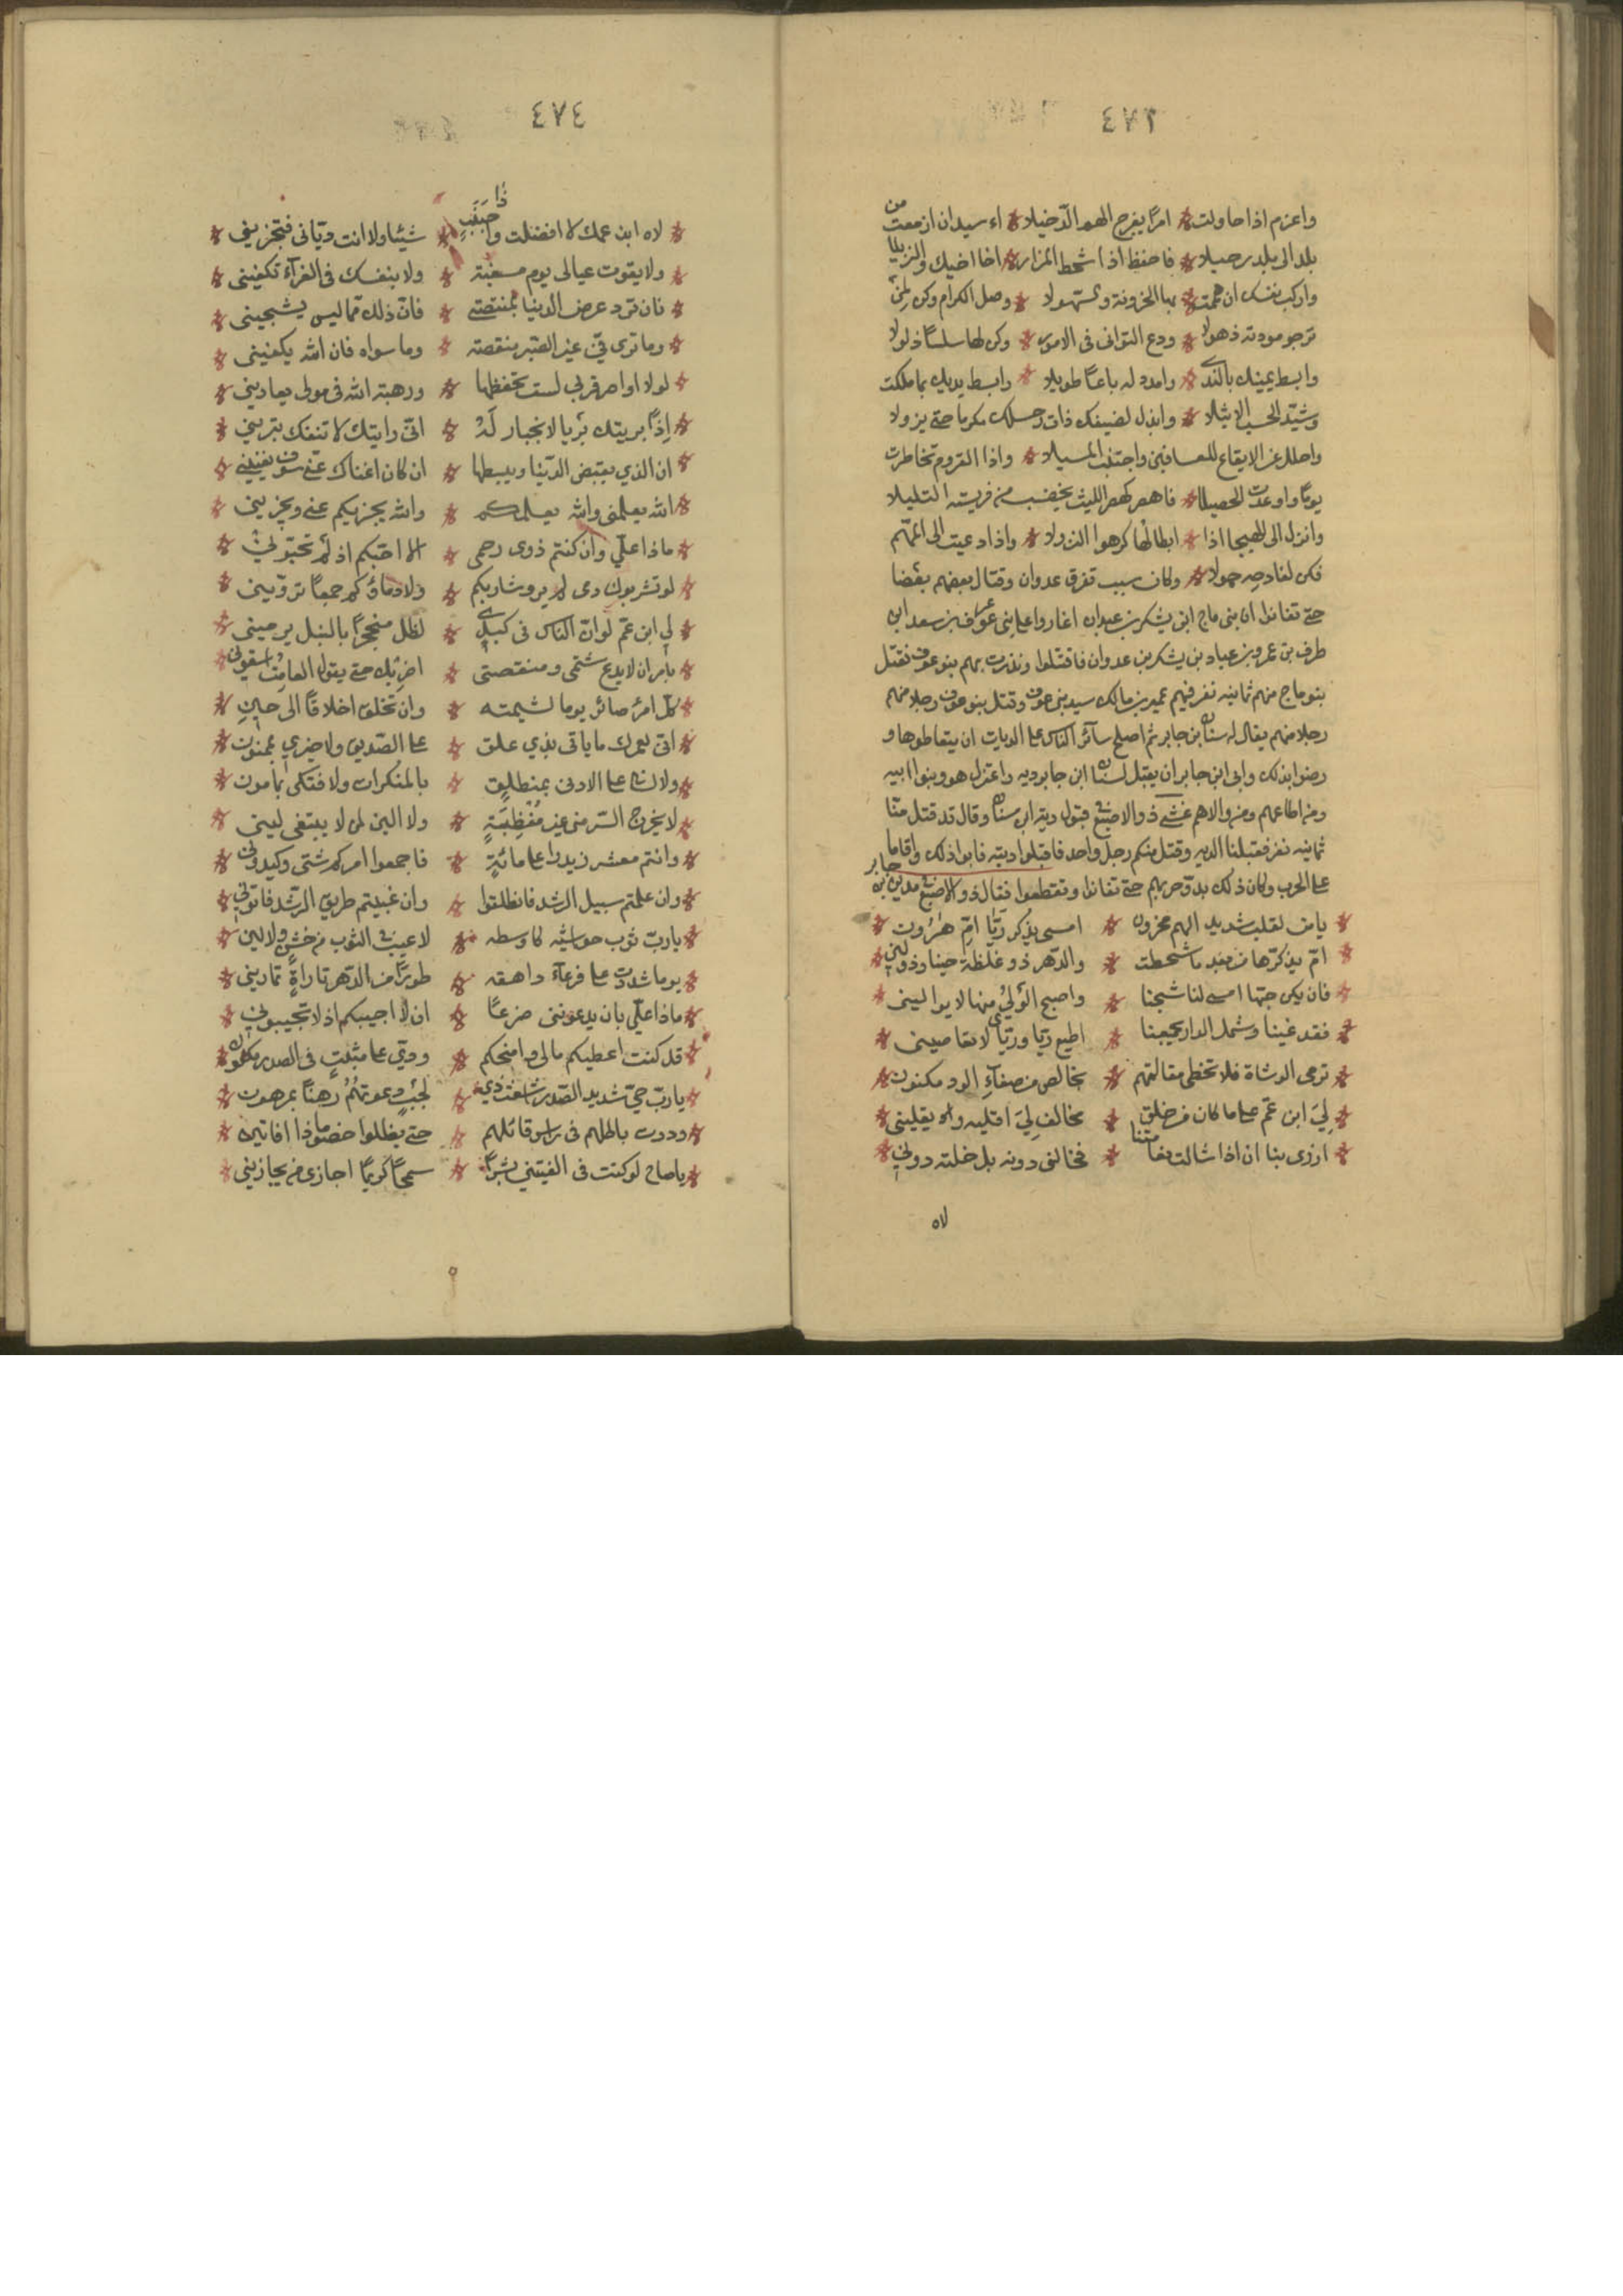 ٤٧٣
واعزم اذا حاولت امرًا يفرج الهم الدّخيلا اء سيد ان ازمعت من
بلد الى بلد رحيلا فاحفظ اذا شحط المزار اخا اخيك والزميلا
واركب بنفسك ان هممت بها الحزونة والسهولا وصل الكرام وكن لمن
ترجو مودته ذهولا ودع التوانى فى الامور وكن لها سلسًا ذلولا
وابسط يمينك بالندى وامدد له باعًا طويلا وابسط يديك بما ملكت
وشيّد الحسب الاثيلا وابذل لضيفك ذات رحلك مكرما حتى يزولا
واحلل عن الايفاع للعافين واجتنب المسيلا واذا القروم تخاطرت
يومًا واوعدت الخصيلا فاهصر كهصر الليث يخضب من فريسته التليلا
وانزل الى الهيجا اذا ابطالها كرهوا النزولا واذا دعيت الى المهم
فكن لفادحه حمولا وكان سبب تفرق عدوان وقتال بعضهم بعضا
حتى تفانوا ان بنى ناج ابن يشكر بن عدوان اغاروا على بنى عوف بن سعد ابن
ظرف بن عمرو بن عباد بن يشكر بن عدوان فاقتتلوا ونذرت بهم بنو عوف فقتل
بنو ناج منهم ثمانيه نفر فيهم عمير بن مالك سيد بنى عوف وقتل بنو عوف رجلا منهم
رجلا منهم يقال له سنان بن جابر ثم اصلح سائر الناس على الديات ان يتعاطوها و
رضوا بذلك وابى ابن جابر ان يقبل لسنان ابن جابر ديه واعتزل هو وبنوا ابيه
ومن اطاعهم ومن والاهم فمشى ذو الاصبع قبول دية ابن سنان وقال قد قتل منّا
ثمانيه نفر فقبلنا الديه وقتل منكم رجل واحد فاقبلوا ديته فابوا ذلك واقاما
على الحرب وكان ذلك بدؤ حربهم حتى تفانوا وتقطعوا فقال ذو الاصبع جابر
يا من لقلب شديد الهم محزون امسى يذكر ريّا امّ هرون
امّ يذكرّها من بعد ما شحطت والدّهر ذو غلظة حينا وذو لين
فان يكن حبّها امسى لنا شجنا واصبح الولىُ منها لا يواليني
فقد غنينا وشمل الدار يجمعنا اطيع ريّا وريّا لا تعاصينى
نرمى الوشاة فلا تخطى مقالتهم بخالص من صفآءِ الود مكنون
لِيَ ابن عمّ على ما كان من خلق مخالف لِيَ اقليه ويقلينى
ازرى بنا ان اذا شالت نعامتنا فخالنى دونه بل خلته دونى
لاه
٤٧٤
لاه ابن عمك لا افضلت وا حَسَبٍ شيئا ولا انت ديّانى فتجزينى
ولا يقوت عيالى يوم مسغبة ولا بنفسك فى العزآء تكفينى
فان ترد عرض الدنيا بمنقصتى فانّ ذلك ممّا ليس يشجينى
وما ترى فيّ غير الصّبر منقصة وما سواه فان الله يكفينى
لولا اواصر قربى لست تحفظها ورهبة الله فى مولى يعادينى
اِذًا بريتك بَريا لا انجبار لَهُ انّى رايتك لا تنفك تبرينى
ان الذى يقبض الدّنيا ويبسطها ان كان اغناك عنّى سوف يغنينى
الله يعلمنى والله يعلمكم والله يجزيكم عنى ويجزينى
ماذا علىّ وان كنتم ذوى رحمى الا احبّكم اذ لم تحبّونى
لو تشربون دمى لم يرو شاربكم ولا دماؤكم جمعًا تروّينى
لى ابن عم لو انّ الناس فى كبدى لظل محتجرًا بالنبل يرمينى
يا عمرو ان لا تدع شتمى ومنقصتى اضربك حتى يقول الهامة اسقونى
كل امرئ صائر يوما لشيمته وان تخلق اخلاقًا الى حين
انى لعمرك ما بابى بذى غلق على الصّديق ولا خيرى بممنون
ولا لسانى على الادنى بمنطلق بالمنكرات ولا فتكى بمامون
لا يخرج السّر منى غير مُغْضِبَةٍ ولا الين لمن لا يبتغى لينى
وانتم معشر زيد على مائةٍ فاجمعوا امركم شتى وكيدونى
وان علمتم سبيل الرشد فانطلقوا وان غبيتم طريق الرّشد فاتونى
يا ربّ ثوب حواشيه كاوسطه لا عيب فى الثوب من خشن ولا لين
يوما شددت على فرغآء داهقه طورًا من الدّهر تاراةٍ تمارينى
ماذا علىّ بان يدعوننى ضرعًا ان لا اجيبكم اذ لا تجيبونى
قد كنت اعطيكم مالى وامنحكم ودّى على مثبتٍ فى الصدر مكنون
يا ربّ حىّ شديد الشّغب ذى لجب دعوتهُمُ رهنًا بمرهون
رددت باطلهم فى راس قائلهم حتى يظلوا خصوما ذا افانين
يا صاح لو كنت فى الفيتنى بشرًا سمحًا كريمًا اجازى من يجازينى